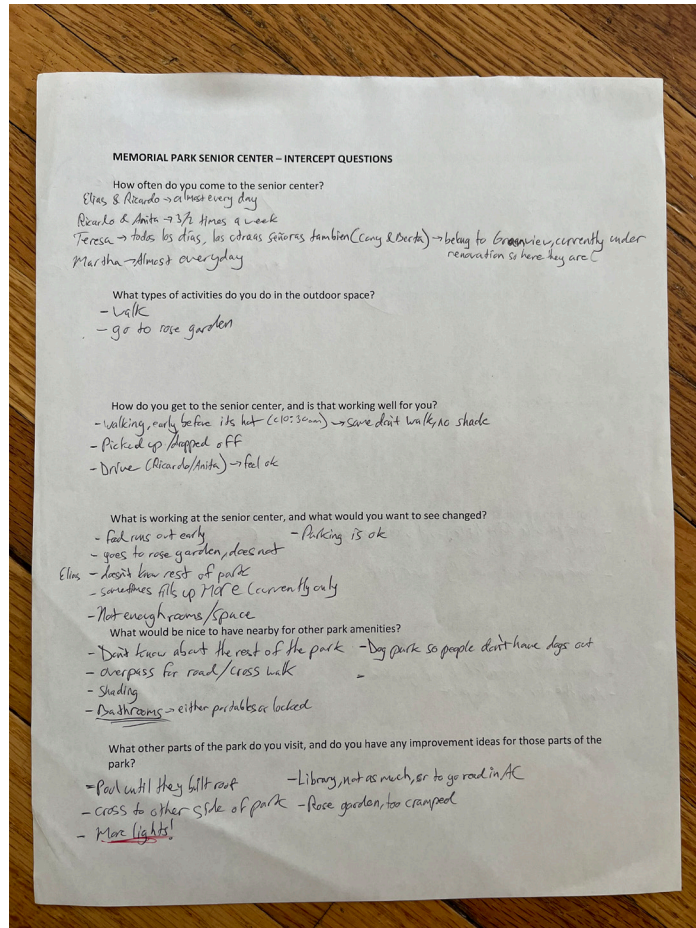 MEMORIAL PARK SENIOR CENTER – INTERCEPT QUESTIONS
How often do you come to the senior center?
Elias & Ricardo → almost every day
Ricardo & Anita → 3/2 times a week
Teresa → todos los días, las otraas señoras tambien (Cany & Berta) → belong to Greenview, currently under
renovation so here they are (
Martha → Almost everyday
What types of activities do you do in the outdoor space?
- walk
- go to rose garden
How do you get to the senior center, and is that working well for you?
- walking, early before its hot (<10:30am) → some don't walk, no shade
- Picked up / dropped off
- Drive (Ricardo/Anita) → feel ok
What is working at the senior center, and what would you want to see changed?
- food runs out early - Parking is ok
- goes to rose garden, does not
Elias - doesn't know rest of park
- sometimes fills up more (currently only
- Not enough rooms/space
What would be nice to have nearby for other park amenities?
- Don't know about the rest of the park - Dog park so people don't have dogs out
- overpass for road/cross walk -
- Shading
- Bathrooms → either portables or locked
What other parts of the park do you visit, and do you have any improvement ideas for those parts of the
park?
- Pool until they bilt roof - Library, not as much, or to go read in AC
- cross to other side of park - Rose garden, too cramped
- More lights!